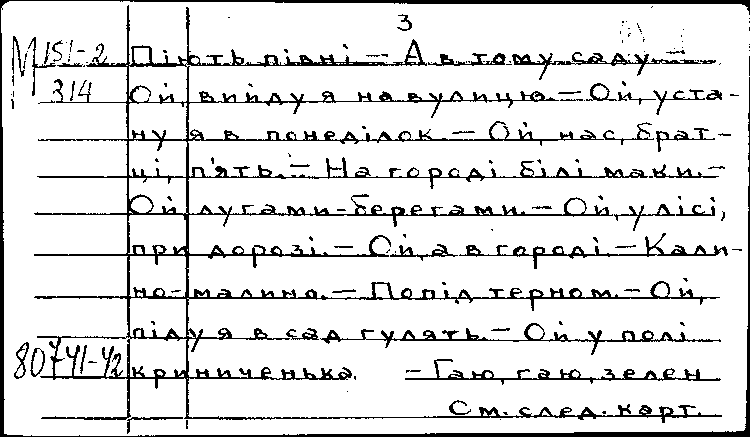 3
М 151-2 Піють півні – А в тому саду. –
314 Ой, вийду я на вулицю. – Ой, уста-
ну я в понеділок. – Ой, нас, брат-
ці, п'ять. – На городі білі маки. –
Ой, лугами-берегами. – Ой, у лісі,
при дорозі. – Ой, а в городі. – Кали-
но-малино. – Попід терном. – Ой,
піду я в сад гулять. – Ой у полі
80741-42 криниченька – Гаю, гаю, зелен
См. след. карт.